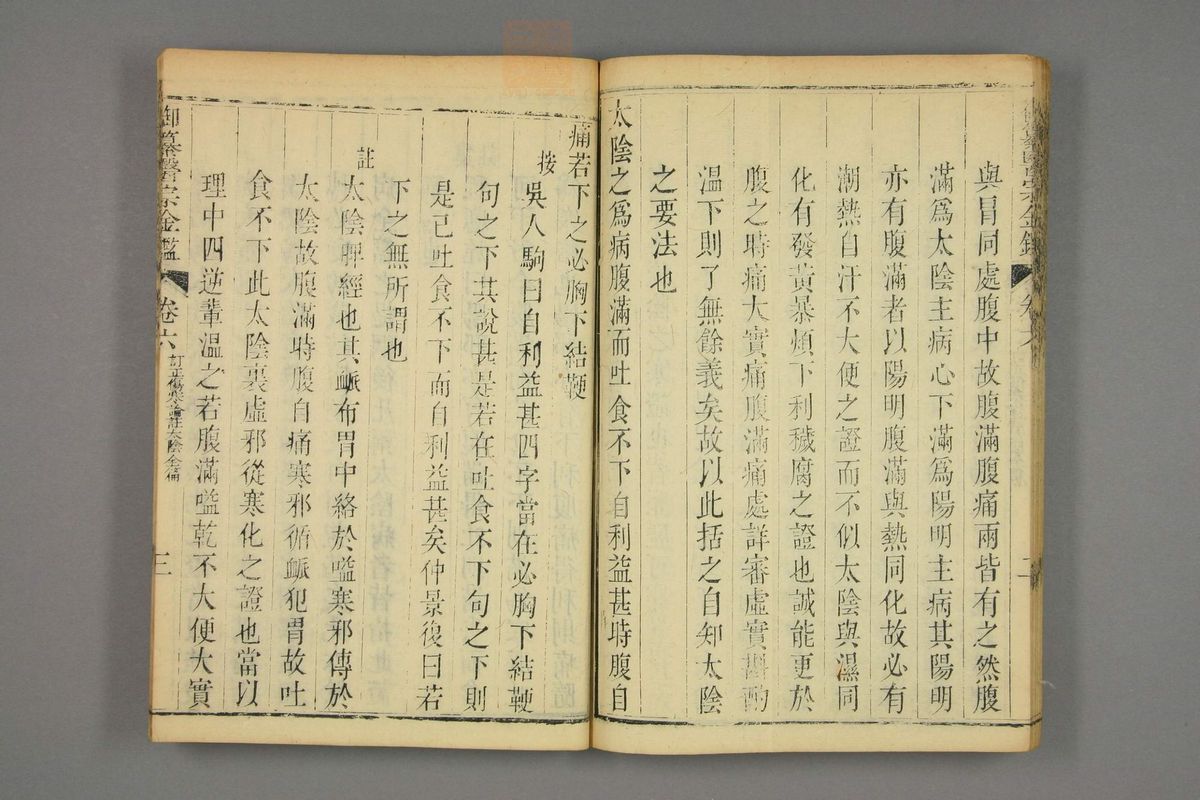 與胃同處腹中故腹滿腹痛兩皆有之然腹
滿爲太陰主病心下滿爲陽明主病其陽明
亦有腹滿者以陽明腹滿與熱同化故必有
潮熱自汗不大便之證而不似太陰與濕同
化有發黃暴煩下利穢腐之證也誠能更於
腹之時痛大實痛腹滿痛處詳審虛實斟酌
温下則了無餘義矣故以此括之自知太陰
之要法也
太陰之爲病腹滿而吐食不下自利益甚時腹自
痛若下之必胸下結鞕
按吳人駒曰自利益甚四字當在必胸下結鞕
句之下其說甚是若在吐食不下句之下則
是已吐食不下而自利益甚矣仲景復曰若
下之無所謂也
註太陰脾經也其脈布胃中絡於嗌寒邪傳於
太陰故腹滿時腹自痛寒邪循脈犯胃故吐
食不下此太陰裏虛邪從寒化之證也當以
理中四逆輩温之若腹滿嗌乾不大便大實
御纂醫宗金鑑
卷六
訂正傷寒論註太陰全篇
三